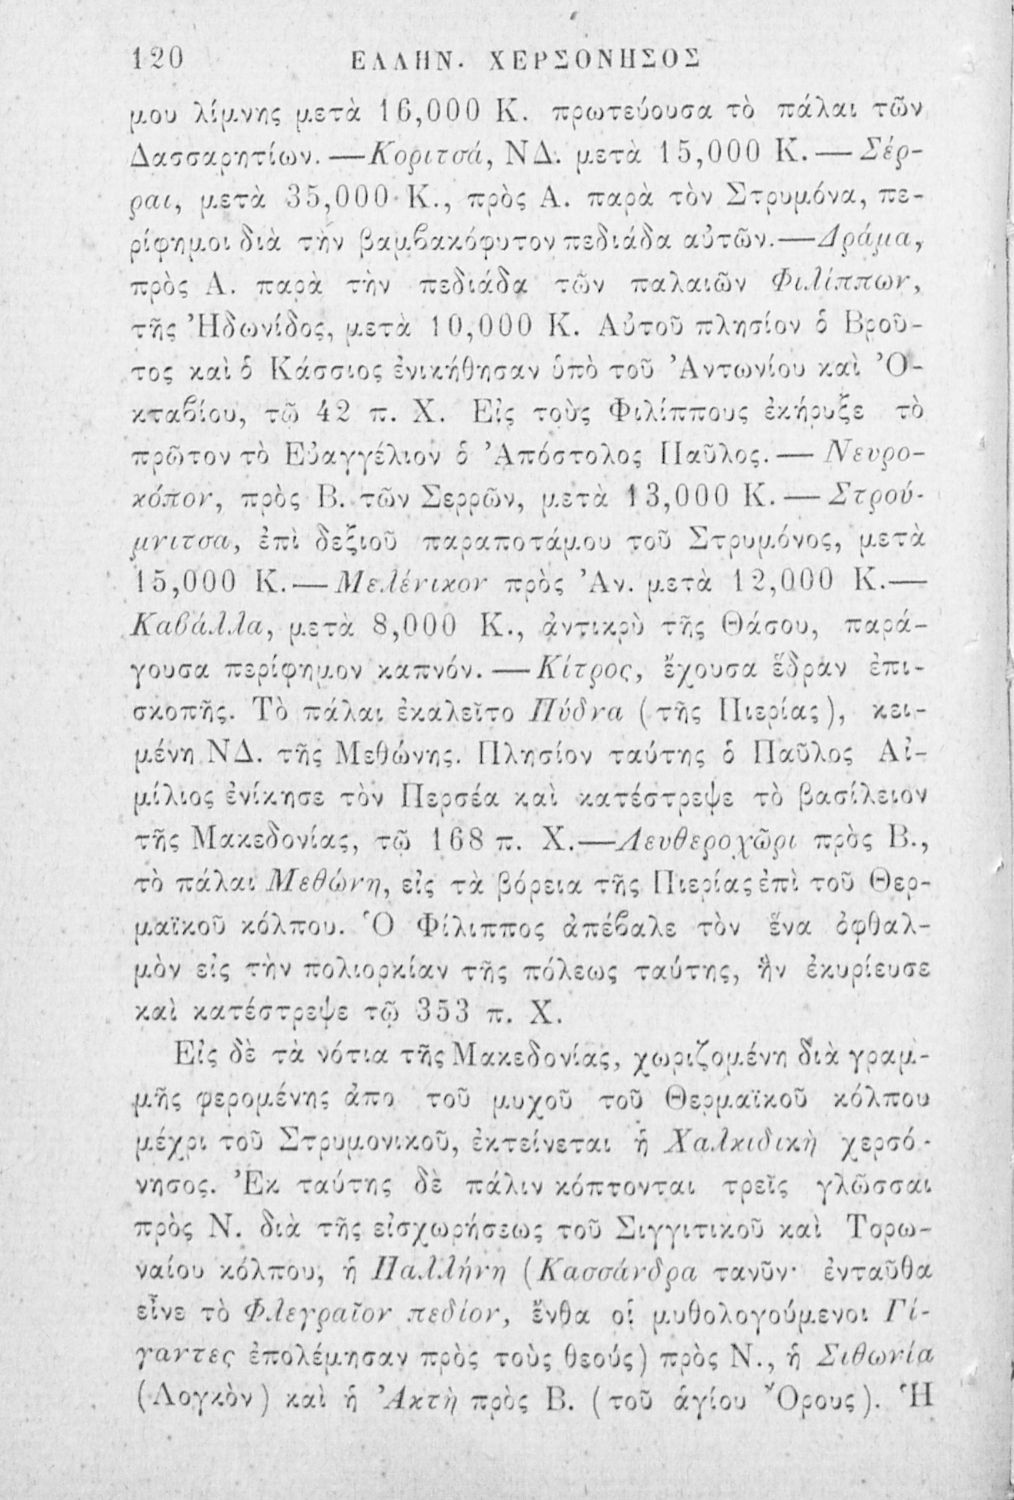 120 ΕΛΛΗΝ. ΧΕΡΣΟΝΗΣΟΣ
μου λίμνης μετὰ 16,000 Κ. πρωτεύουσα τὸ πάλαι τῶν
Δασσαρητίων.—Κοριτσά, ΝΔ. μετὰ 15,000 Κ.—Σέρ-
ραι, μετὰ 35,000 Κ., πρὸς Α. παρὰ τὸν Στρυμόνα, πε-
ρίφημοι διὰ τὴν βαμβακόφυτον πεδιάδα αὐτῶν.—Δράμα,
πρὸς Α. παρὰ τὴν πεδιάδα τῶν παλαιῶν Φιλίππων,
τῆς Ἡδωνίδος, μετὰ 10,000 Κ. Αὐτοῦ πλησίον ὁ Βροῦ-
τος καὶ ὁ Κάσσιος ἐνικήθησαν ὑπὸ τοῦ Ἀντωνίου καὶ Ὀ-
κταβίου, τῷ 42 π. Χ. Εἰς τοὺς Φιλίππους ἐκήρυξε τὸ
πρῶτον τὸ Εὐαγγέλιον ὁ Ἀπόστολος Παῦλος.—Νευρο-
κόπον, πρὸς Β. τῶν Σερρῶν, μετὰ 13,000 Κ.—Στρού-
μνιτσα, ἐπὶ δεξιοῦ παραποτάμου τοῦ Στρυμόνος, μετὰ
15,000 Κ.—Μελένικον πρὸς Ἀν. μετὰ 12,000 Κ.—
Καβάλλα, μετὰ 8,000 Κ., ἀντικρὺ τῆς Θάσου, παρά-
γουσα περίφημον καπνόν.—Κίτρος, ἔχουσα ἕδραν ἐπι-
σκοπῆς. Τὸ πάλαι ἐκαλεῖτο Πύδνα (τῆς Πιερίας), κει-
μένη ΝΔ. τῆς Μεθώνης. Πλησίον ταύτης ὁ Παῦλος Αἰ-
μίλιος ἐνίκησε τὸν Περσέα καὶ κατέστρεψε τὸ βασίλειον
τῆς Μακεδονίας, τῷ 168 π. Χ.—Λευθεροχῶρι πρὸς Β.,
τὸ πάλαι Μεθώνη, εἰς τὰ βόρεια τῆς Πιερίας ἐπὶ τοῦ Θερ-
μαϊκοῦ κόλπου. Ὁ Φίλιππος ἀπέβαλε τὸν ἕνα ὀφθαλ-
μὸν εἰς τὴν πολιορκίαν τῆς πόλεως ταύτης, ἣν ἐκυρίευσε
καὶ κατέστρεψε τῷ 353 π. Χ.
Εἰς δὲ τὰ νότια τῆς Μακεδονίας, χωριζομένη διὰ γραμ-
μῆς φερομένης ἀπο τοῦ μυχοῦ τοῦ Θερμαϊκοῦ κόλπου
μέχρι τοῦ Στρυμονικοῦ, ἐκτείνεται ἡ Χαλκιδικὴ χερσό-
νησος. Ἐκ ταύτης δὲ πάλιν κόπτονται τρεῖς γλῶσσαι
πρὸς Ν. διὰ τῆς εἰσχωρήσεως τοῦ Σιγγιτικοῦ καὶ Τορω-
ναίου κόλπου, ἡ Παλλήνη (Κασσάνδρα τανῦν· ἐνταῦθα
εἶνε τὸ Φλεγραῖον πεδίον, ἔνθα οἱ μυθολογούμενοι Γί-
γαντες ἐπολέμησαν πρὸς τοὺς θεούς) πρὸς Ν., ἡ Σιθωνία
(Λογκὸν) καὶ ἡ Ἀκτὴ πρὸς Β. (τοῦ ἁγίου Ὄρους). Ἡ